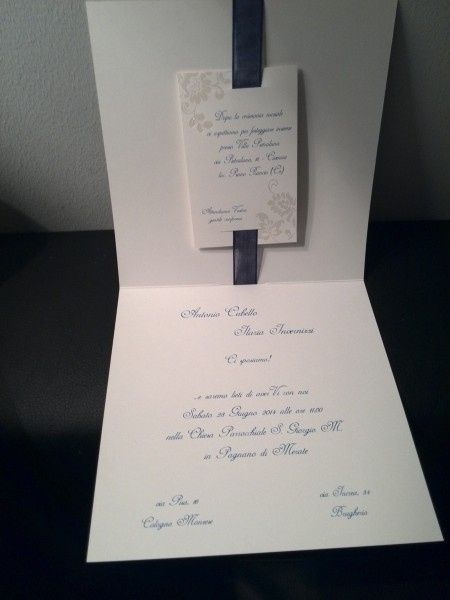 Dopo la cerimonia nuziale
ci aspettiamo per festeggiare insieme
presso Villa
via
loc.
Attendiamo Vostra
gentile conferma
Antonio Cubello
Ilaria Invernizzi
Ci sposiamo!
...e saremo lieti di averVi con noi
Sabato 28 Giugno 2014 alle ore 11.00
nella Chiesa Parrocchiale S. Giorgio M.
in Pagnano di Merate
via Pisa, 16
Cologno Monzese
via 34
Brugherio